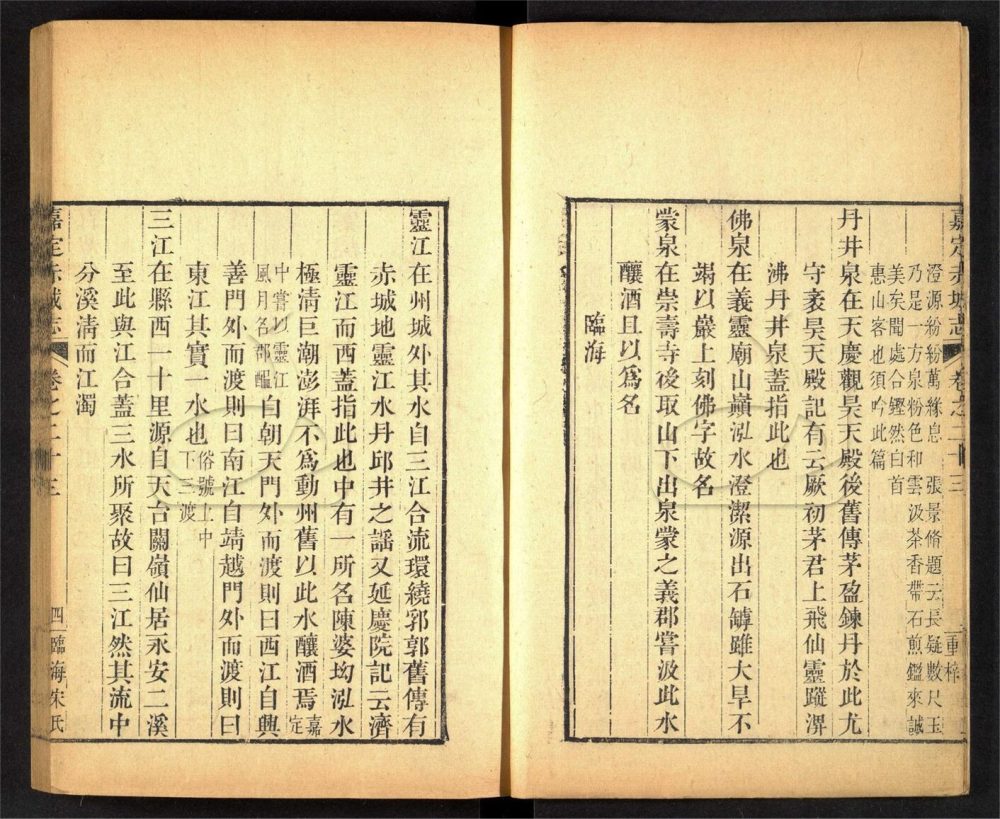 嘉定赤城志 卷之二十三 重梓
澄源紛紛萬緣息 張景脩題云長疑數尺玉
乃是一方泉粉色和雲汲茶香帶石煎鑑來誠
美矣聞處合鏗然白首
惠山客也須吟此篇
丹井泉在天慶觀昊天殿後舊傳茅盈鍊丹於此尤
守袤昊天殿記有云厥初茅君上飛仙靈蹤㴑
沸丹井泉蓋指此也
佛泉在義靈廟山巔泓水澄潔源出石罅雖大旱不
竭以巖上刻佛字故名
蒙泉在崇壽寺後取山下出泉蒙之義郡嘗汲此水
釀酒且以爲名
臨海
靈江在州城外其水自三江合流環繞郛郭舊傳有
赤城地靈江水丹邱井之謡又延慶院記云濟
靈江而西蓋指此也中有一所名陳婆㘭泓水
極清巨潮澎湃不爲動州舊以此水釀酒焉嘉定
中嘗以靈江風月名郡醞自朝天門外而渡則曰西江自興
善門外而渡則曰南江自靖越門外而渡則曰
東江其實一水也俗號上中下三渡
三江在縣西一十里源自天台關嶺仙居永安二溪
至此與江合蓋三水所聚故曰三江然其流中
分溪清而江濁
嘉定赤城志 卷之二十三 四 臨海宋氏